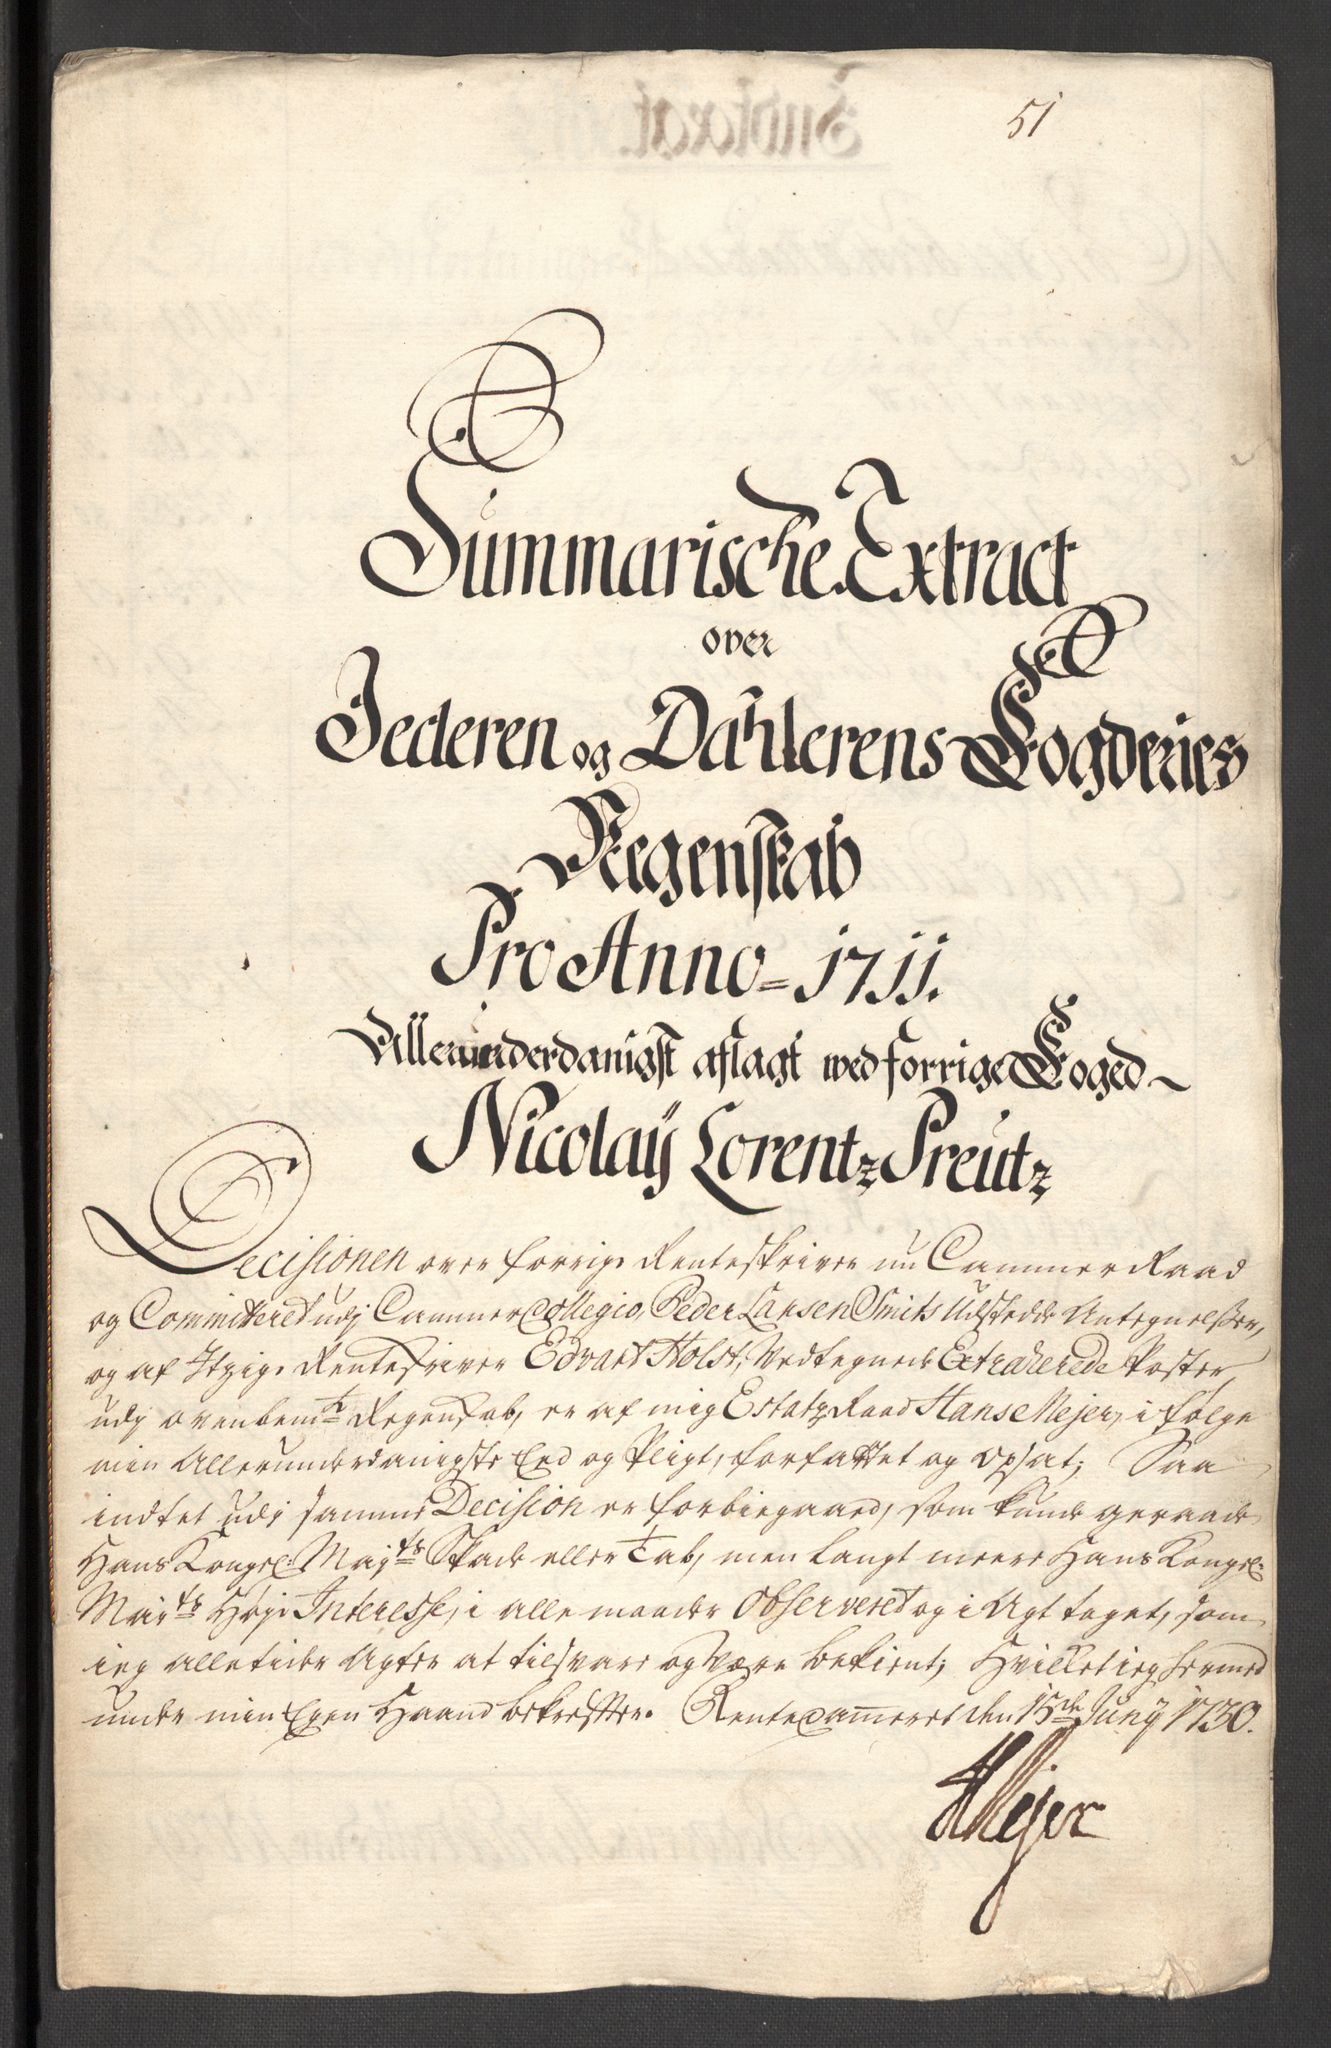 51
Summarische Extract
over
Jederen og Dahlerens Fogderies
Regenskab
Pro Anno = 1711.
Allerunderdanigst aflagt wed forrige Foged
Nicolaÿ Lorentz Preutz
Decisionen over forrige Renteskriver nu Cammer Raad
og Committeret udj Cammer Collegio, Peder Larsen Smits Udstedde Antegnelsser,
og af Itzige Renteskriver Edvart Holst, Vedtegnede Extraherede Poster,
udj ovenbemte Regenskab, er af mig Estatz Raad Hans Mejer, i følge
min Allerunderdanigste Eed og Pligt, forfattet og Opsat; Saa
indtet udj samme Decision er forbiegaaed, som kunde geraade
Hans Kongel: Mayts Skade eller Tab, men langt meere Hans Kongel:
Mayts Høje Interesse, i alle maader Observeret og i Agt taget, som
ieg alletider Agter at tilsvare og Være bekient; Hvilket ieg hermed
under min Egen Haand bekrefter. Rentecammeret den 15de Junÿ 1730.
HMejer